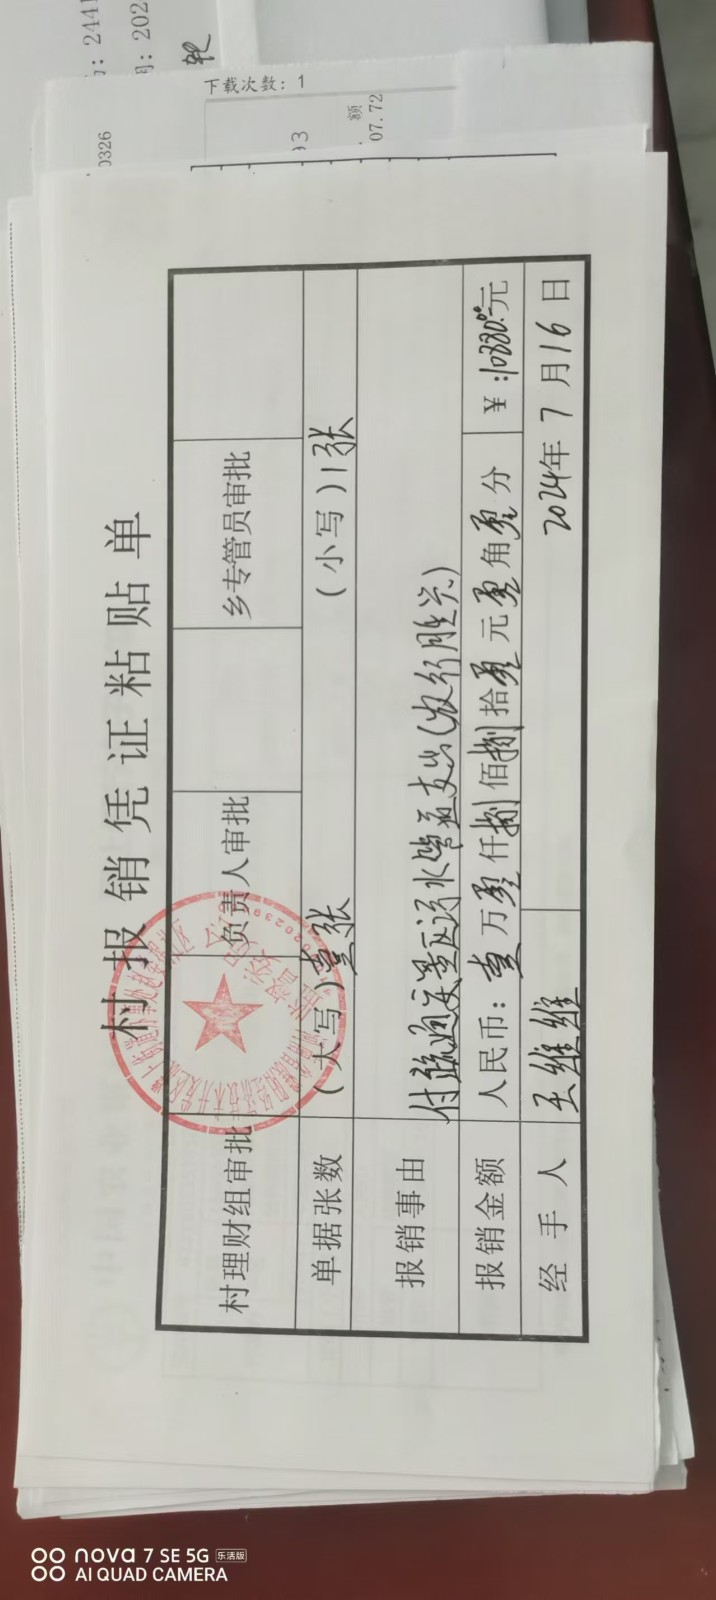 下载次数：1
0326
93
额
07.72
村报销凭证粘贴单
村理财组审批 负责人审批 乡专管员审批
单据张数 （大写）壹张 （小写）1张
报销事由 付疏通景区污水管道支出（农行胜兴）
报销金额 人民币：壹万零仟捌佰捌拾零元零角零分 ￥：10880.00元
经手人 王维维 2024年7月16日
nova 7 SE 5G 乐活版
AI QUAD CAMERA